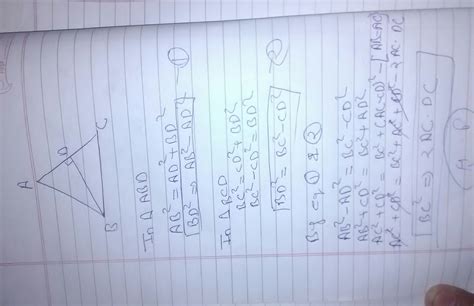 A
D
B
C
In Δ ABD
AB² = AD² + BD²
BD² ⇒ AB² - AD² — ①
In Δ BCD
BC² = CD² + BD²
BC² - CD² = BD²
BD² = BC² - CD² — ②
By eq ① & ②
AB² - AD² = BC² - CD²
AB² + CD² = BC² + AD²
AC² + CD² = BC² + (AC - CD)² - [AB = AC]
AC² + CD² = BC² + AC² + CD² - 2 AC · DC
BC² ⇒ 2 AC · DC